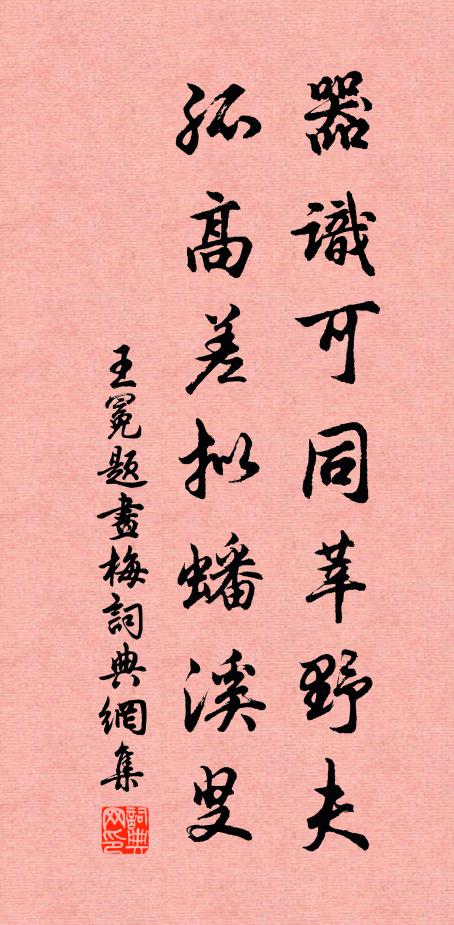 器識可同莘野夫
孤高差拟蟠溪叟
王冕题畫梅詞典網集
詞典网印